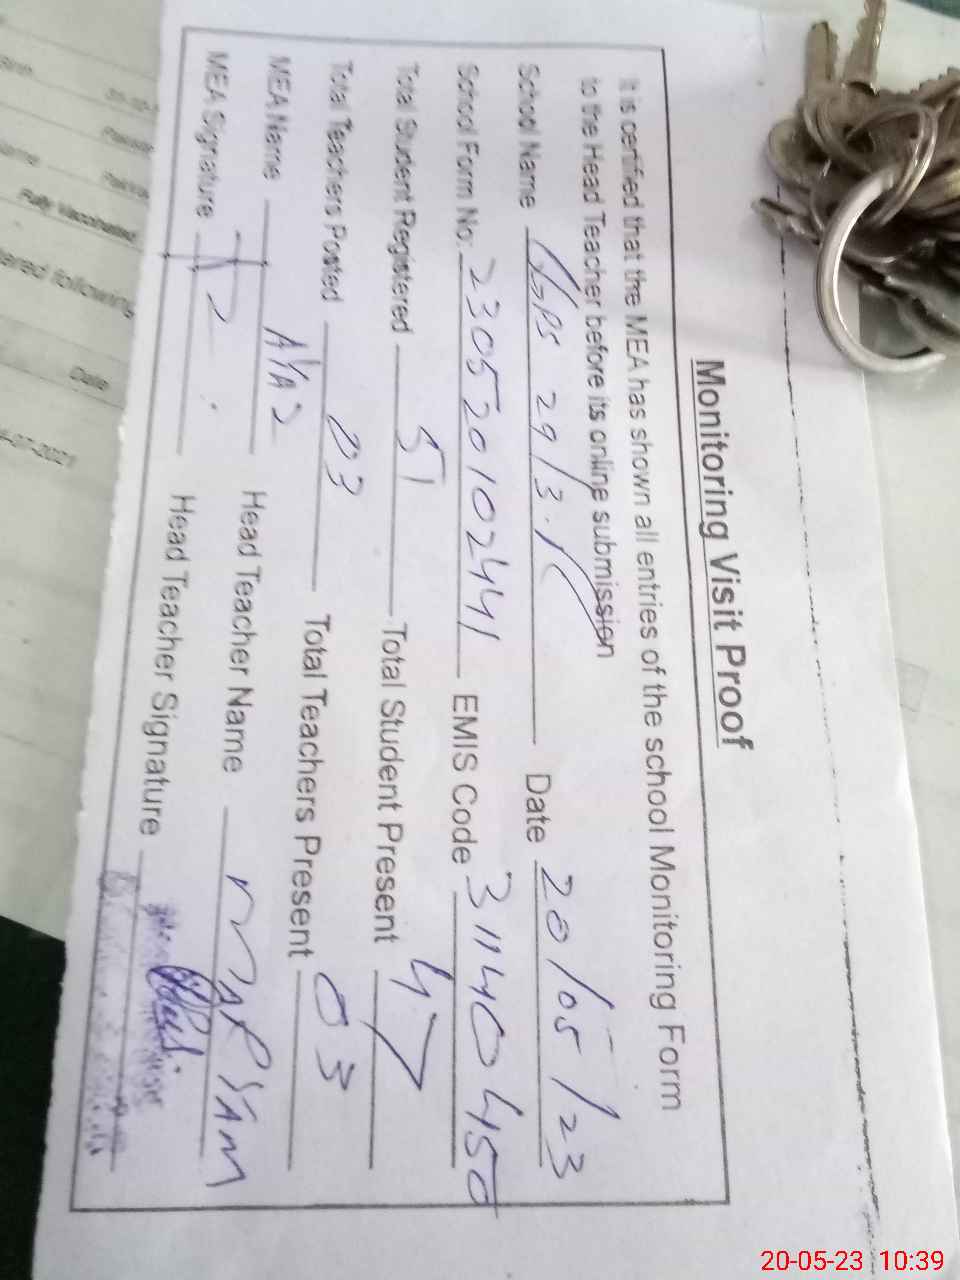 Monitoring Visit Proof
It is certified that the MEA has shown all entries of the school Monitoring Form
to the Head Teacher before its online submission
School Name GPS 29/3.R Date 20/05/23
School Form No. 230520102441 EMIS Code 31140450
Total Student Registered 51 Total Student Present 47
Total Teachers Posted 03 Total Teachers Present 03
MEA Name AYAZ Head Teacher Name MARYAM
MEA Signature Head Teacher Signature
Fully Vaccinated
following
Date
-07-2021
20-05-23 10:39